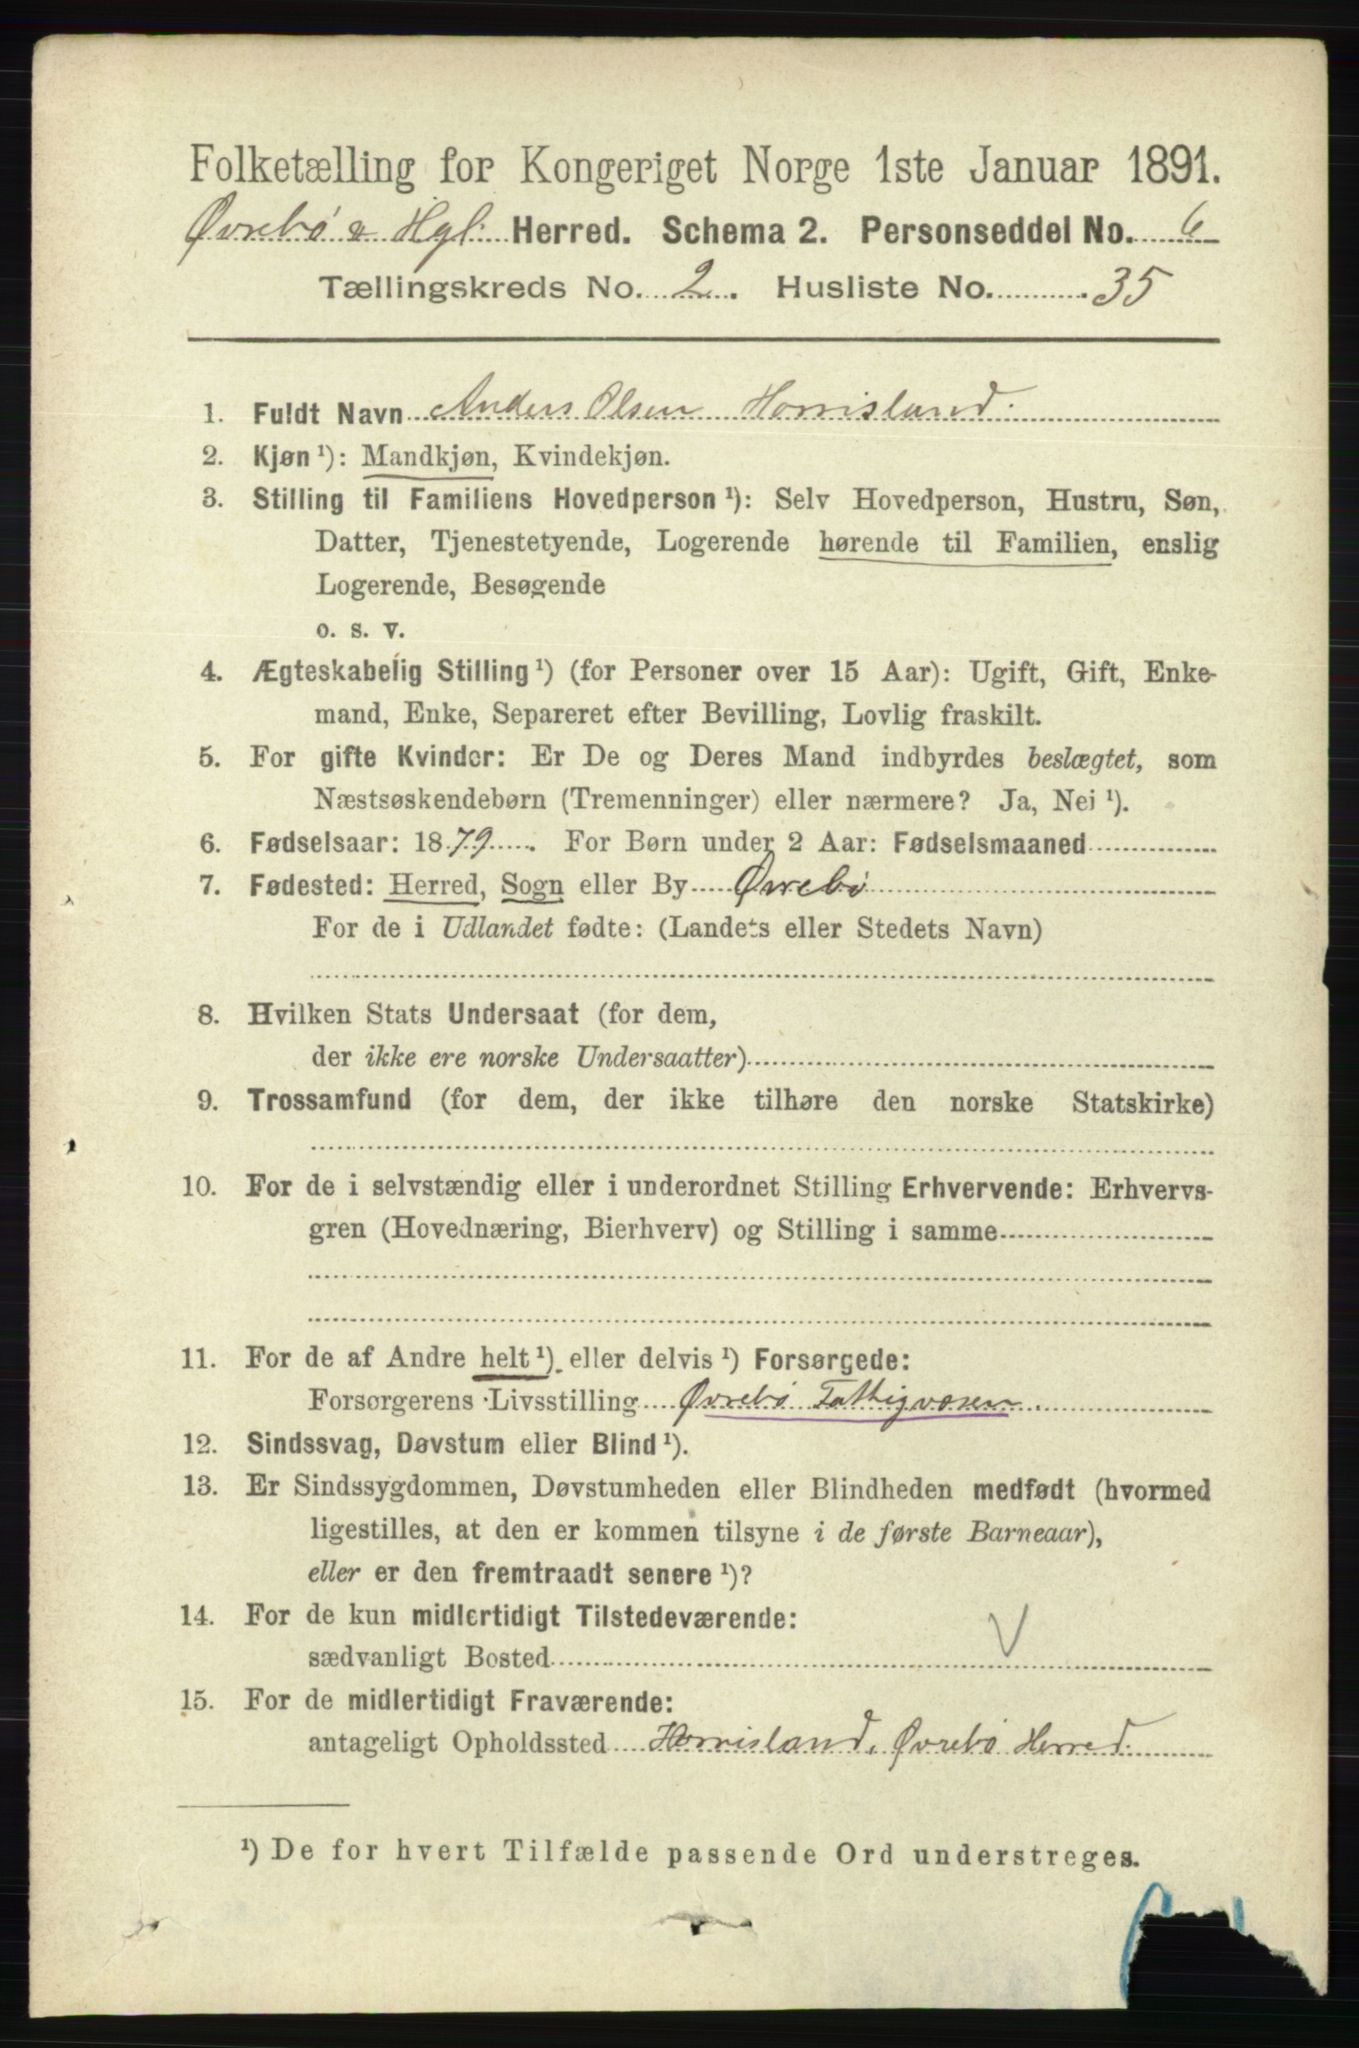 Folketælling for Kongeriget Norge 1ste Januar 1891.
Øvrebø & Hgl: Herred. Schema 2. Personseddel No. 6
Tællingskreds No. 2. Husliste No. 35
1. Fuldt Navn Anders Olsen Horrisland.
2. Kjøn ¹): Mandkjøn, Kvindekjøn.
3. Stilling til Familiens Hovedperson ¹): Selv Hovedperson, Hustru, Søn,
Datter, Tjenestetyende, Logerende hørende til Familien, enslig
Logerende, Besøgende
o. s. v.
4. Ægteskabelig Stilling ¹) (for Personer over 15 Aar): Ugift, Gift, Enke-
mand, Enke, Separeret efter Bevilling, Lovlig fraskilt.
5. For gifte Kvinder: Er De og Deres Mand indbyrdes beslægtet, som
Næstsøskendebørn (Tremenninger) eller nærmere? Ja, Nei ¹).
6. Fødselsaar: 1879. For Børn under 2 Aar: Fødselsmaaned
7. Fødested: Herred, Sogn eller By Øvrebø
For de i Udlandet fødte: (Landets eller Stedets Navn)
8. Hvilken Stats Undersaat (for dem,
der ikke ere norske Undersaatter)
9. Trossamfund (for dem, der ikke tilhøre den norske Statskirke)
10. For de i selvstændig eller i underordnet Stilling Erhvervende: Erhvervs-
gren (Hovednæring, Bierhverv) og Stilling i samme
11. For de af Andre helt ¹) eller delvis ¹) Forsørgede:
Forsørgerens Livsstilling Øvrebø Fattigvæsen.
12. Sindssvag, Døvstum eller Blind ¹).
13. Er Sindssygdommen, Døvstumheden eller Blindheden medfødt (hvormed
ligestilles, at den er kommen tilsyne i de første Barneaar),
eller er den fremtraadt senere ¹)?
14. For de kun midlertidigt Tilstedeværende:
sædvanligt Bosted
15. For de midlertidigt Fraværende:
antageligt Opholdssted Horrisland, Øvrebø Herred.
¹) De for hvert Tilfælde passende Ord understreges.